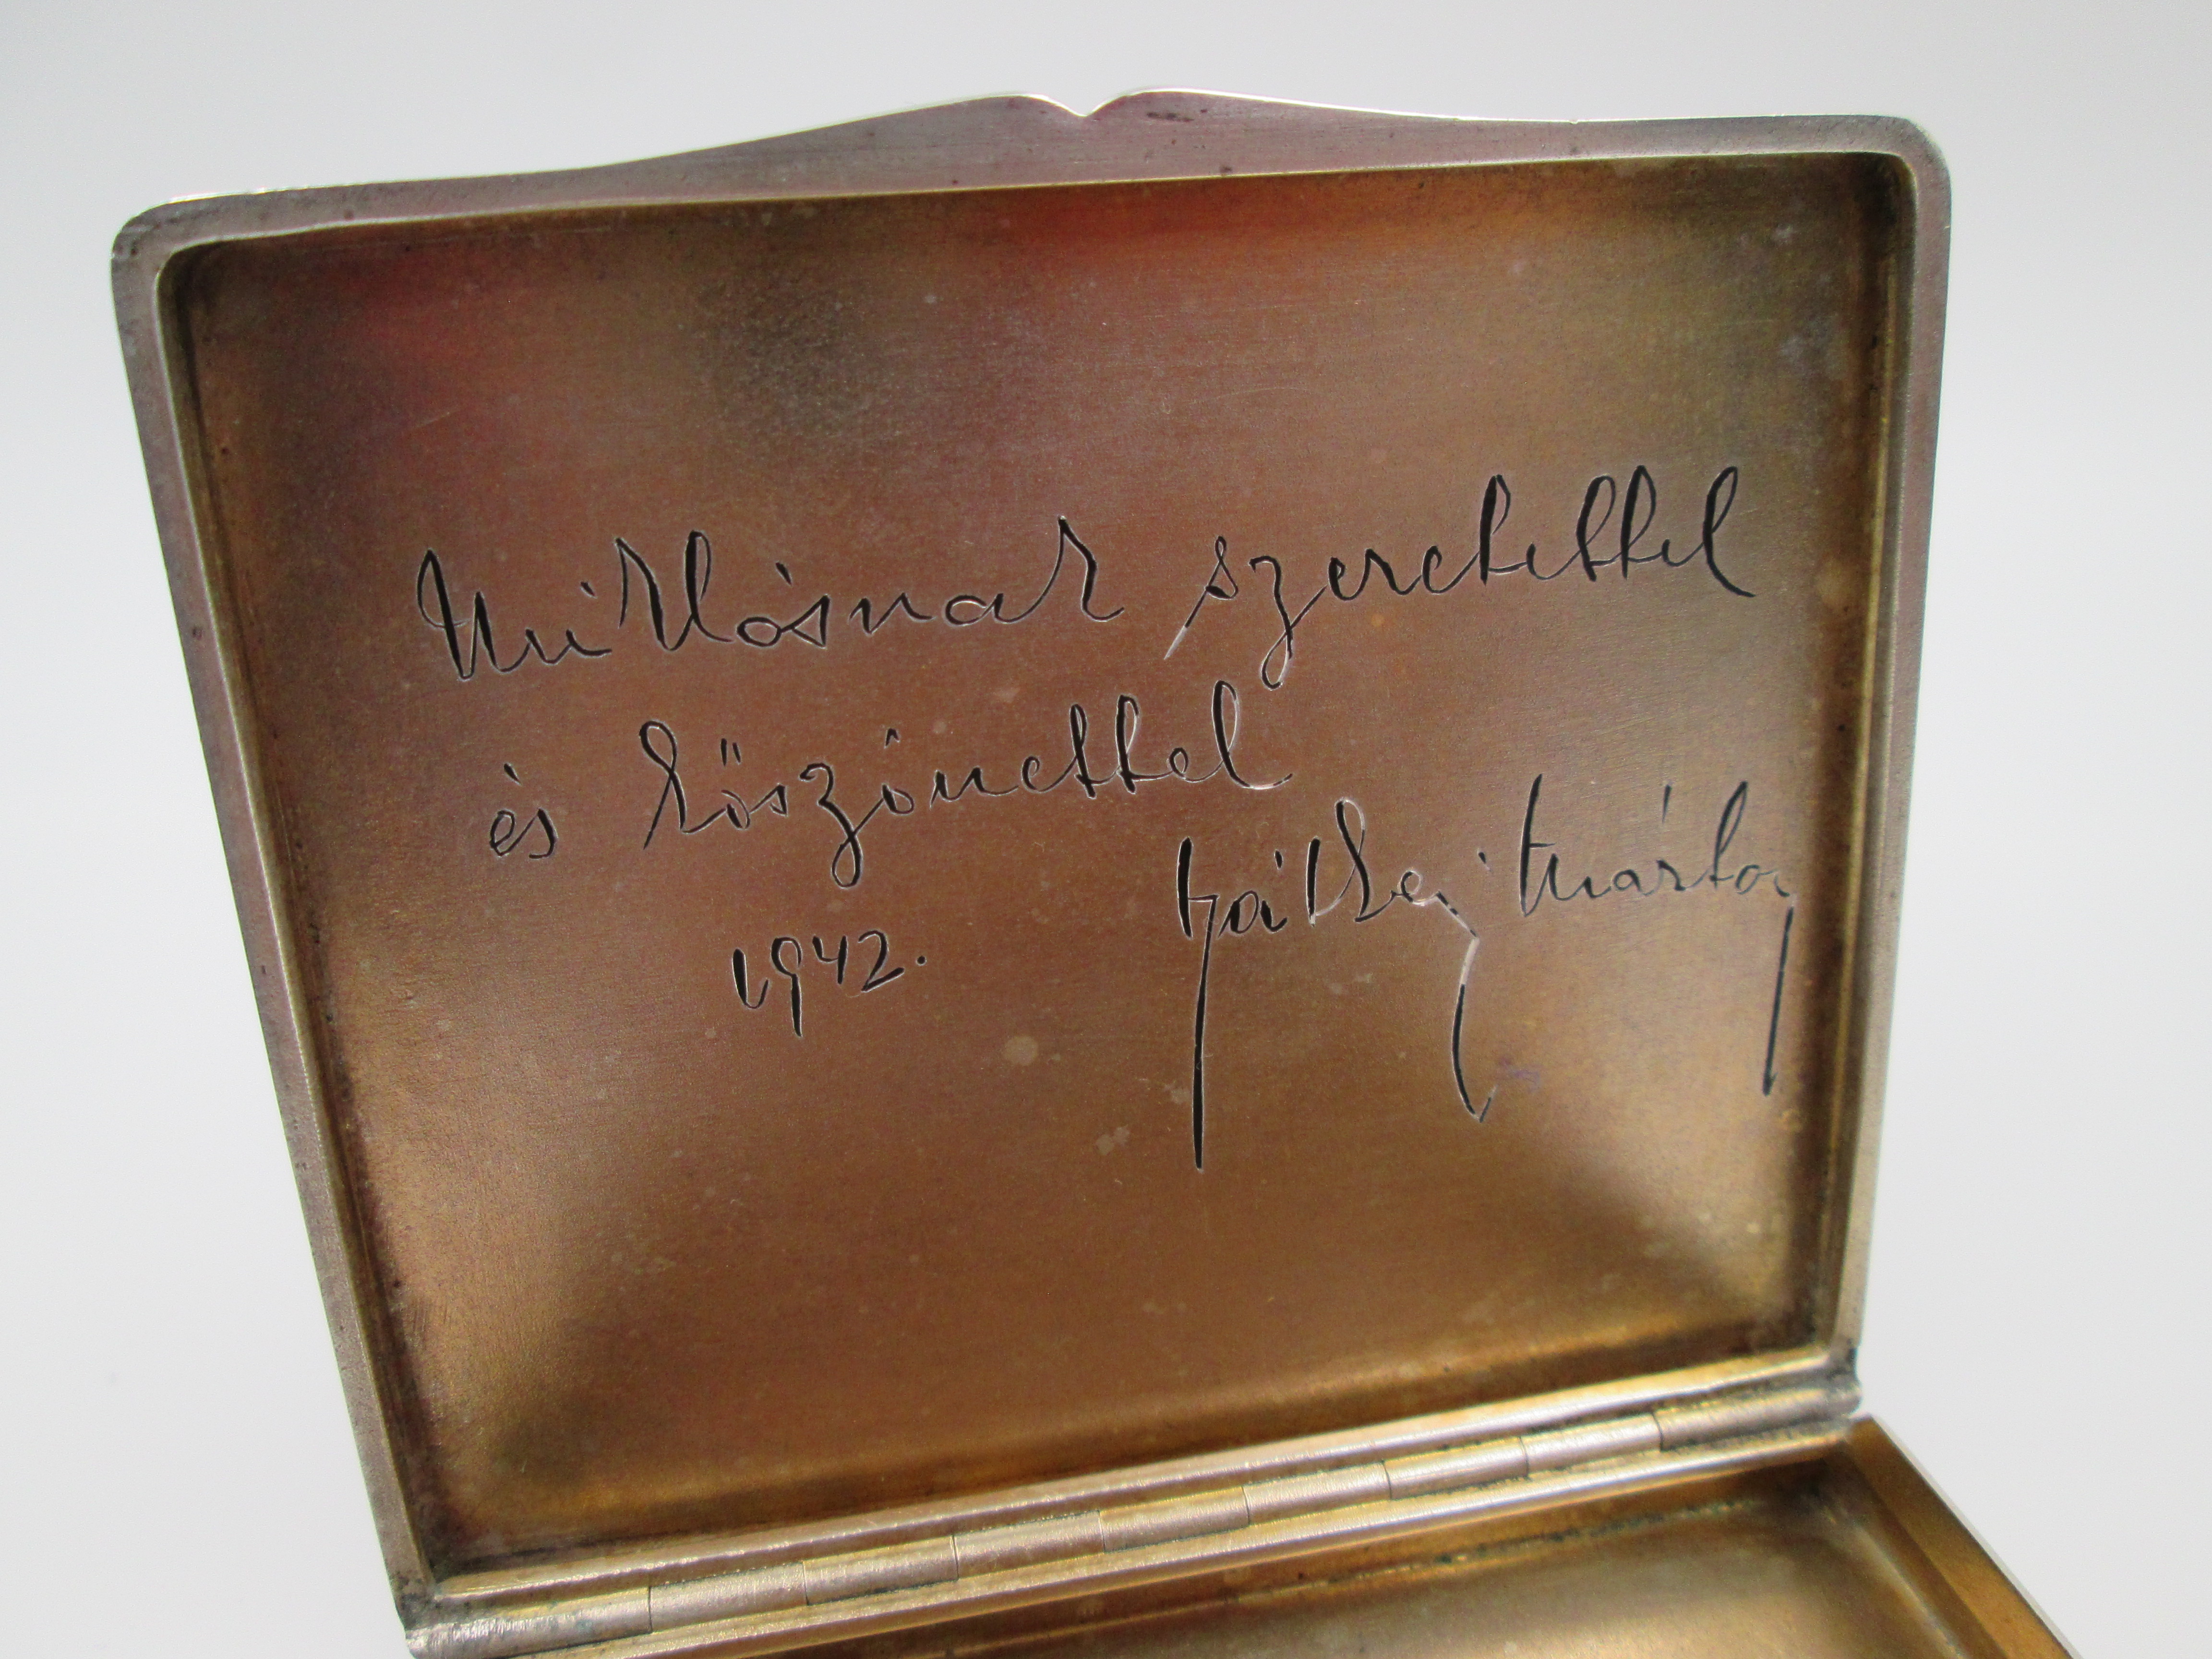 Miklósnak szeretettel
és köszönettel
Rátkay Márton
1942.